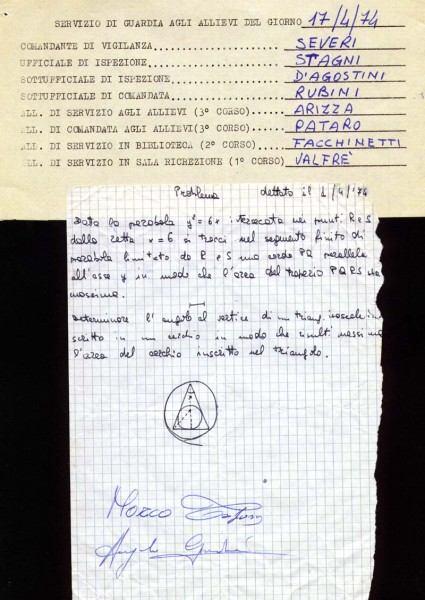 SERVIZIO DI GUARDIA AGLI ALLIEVI DEL GIORNO 17/4/74
COMANDANTE DI VIGILANZA SEVERI
UFFICIALE DI ISPEZIONE STAGNI
SOTTUFFICIALE DI ISPEZIONE D'AGOSTINI
SOTTUFFICIALE DI COMANDATA RUBINI
ALL. DI SERVIZIO AGLI ALLIEVI (3° CORSO) ARIZZA
ALL. DI COMANDATA AGLI ALLIEVI(3° CORSO) PATARO
ALL. DI SERVIZIO IN BIBLIOTECA (2° CORSO) FACCHINETTI
ALL. DI SERVIZIO IN SALA RICREZIONE (1° CORSO) VALFRE'
Problema dettato il /4/74
Data la parabola y²=6x intersecata nei punti R e S
dalla retta x=6 si tracci nel segmento finito di
parabola limitato da R e S una corda PQ parallela
all'asse y in modo che l'area del trapezio PQRS sia
massima.
Determinare l'angolo al vertice di un triang. isoscele in
scritto in un cerchio in modo che risulti massima
l'area del cerchio inscritto nel triangolo.
Marco
Angelo